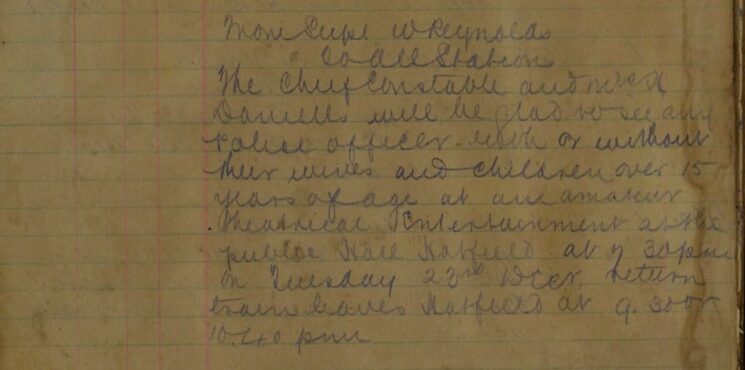 From Supt W Reynolds
To all Stations
The Chief Constable and Mrs
Daniells will be glad to see any
Police officer with or without
their wives and children over 15
years of age at an amateur
Theatrical Entertainment at the
public Hall Hatfield at 7.30pm
on Tuesday 23rd Decr return
train leaves Hatfield at 9.30 or
10.40 pm